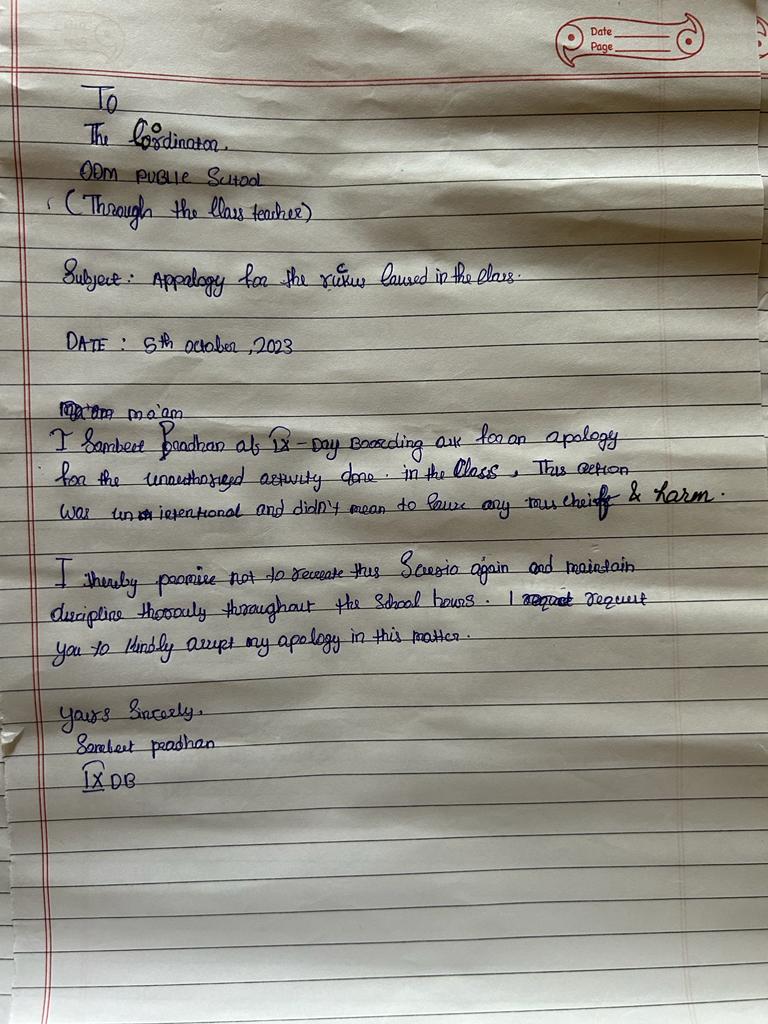 Date
Page
To
The Coordinator.
ODM PUBLIC School
(Through the Class teacher)
Subject: Appalogy for the ruckus Caused in the Class.
DATE : 5th october ,2023
ma'am ma'am
I Sambeet Pradhan of IX - Day Boarding ask for an apology
for the unauthorised activity done. in the Class, This action
was un intentional and didn't mean to Cause any mischeif & harm.
I thereby promise not to recreate this again and maintain
discipline throughout the School hours. I request
You to kindly accept my apology in this matter.
Yours Sincerly,
Sambeet pradhan
IX DB